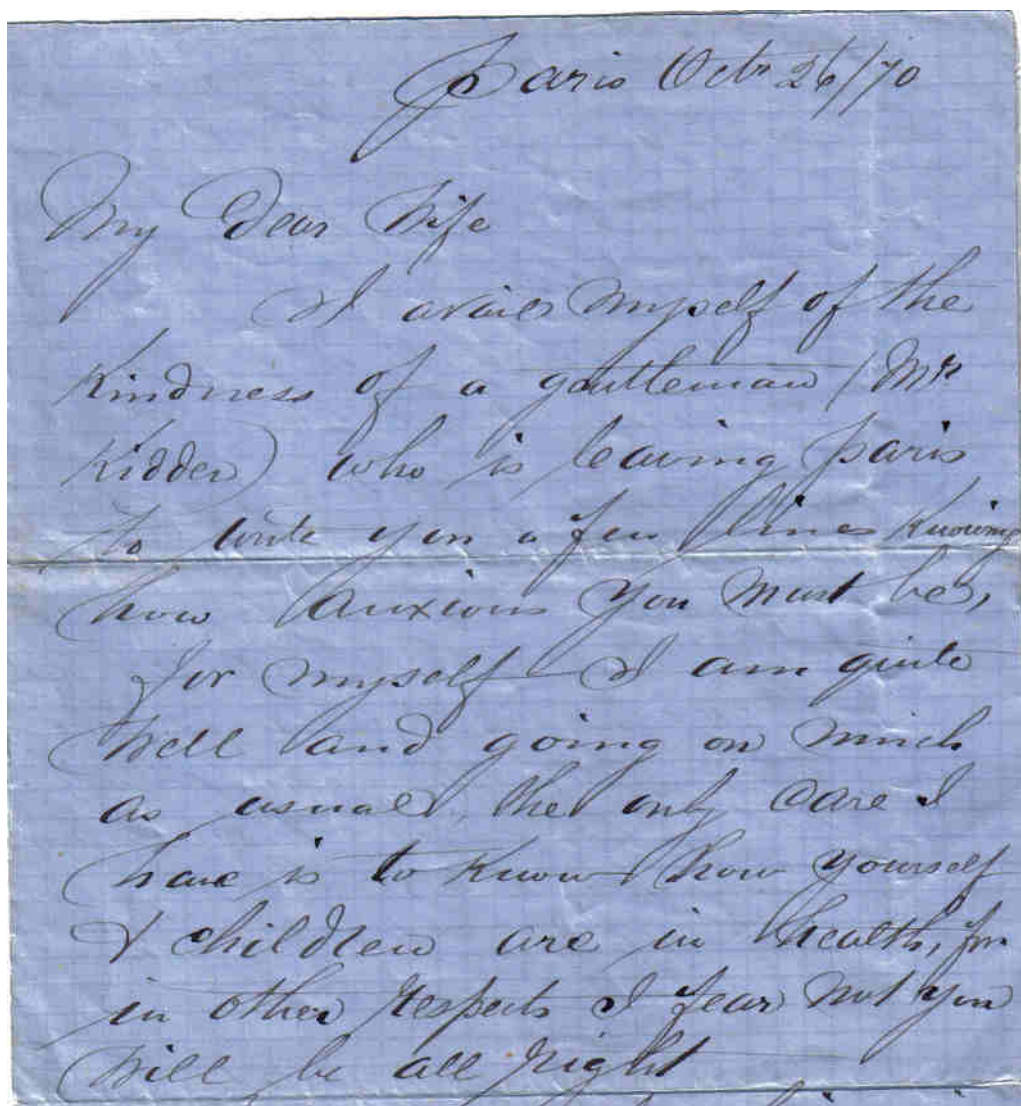 Paris Octr 26/70
My Dear Wife
I avail myself of the
Kindness of a gentleman (Mr
Kidder) who is leaving paris
to write you a few lines Knowing
how anxious you must be,
for myself I am quite
well and going on much
as usual, the only care I
have is to Know how yourself
& children are in health, for
in other respects I fear not you
will be all right